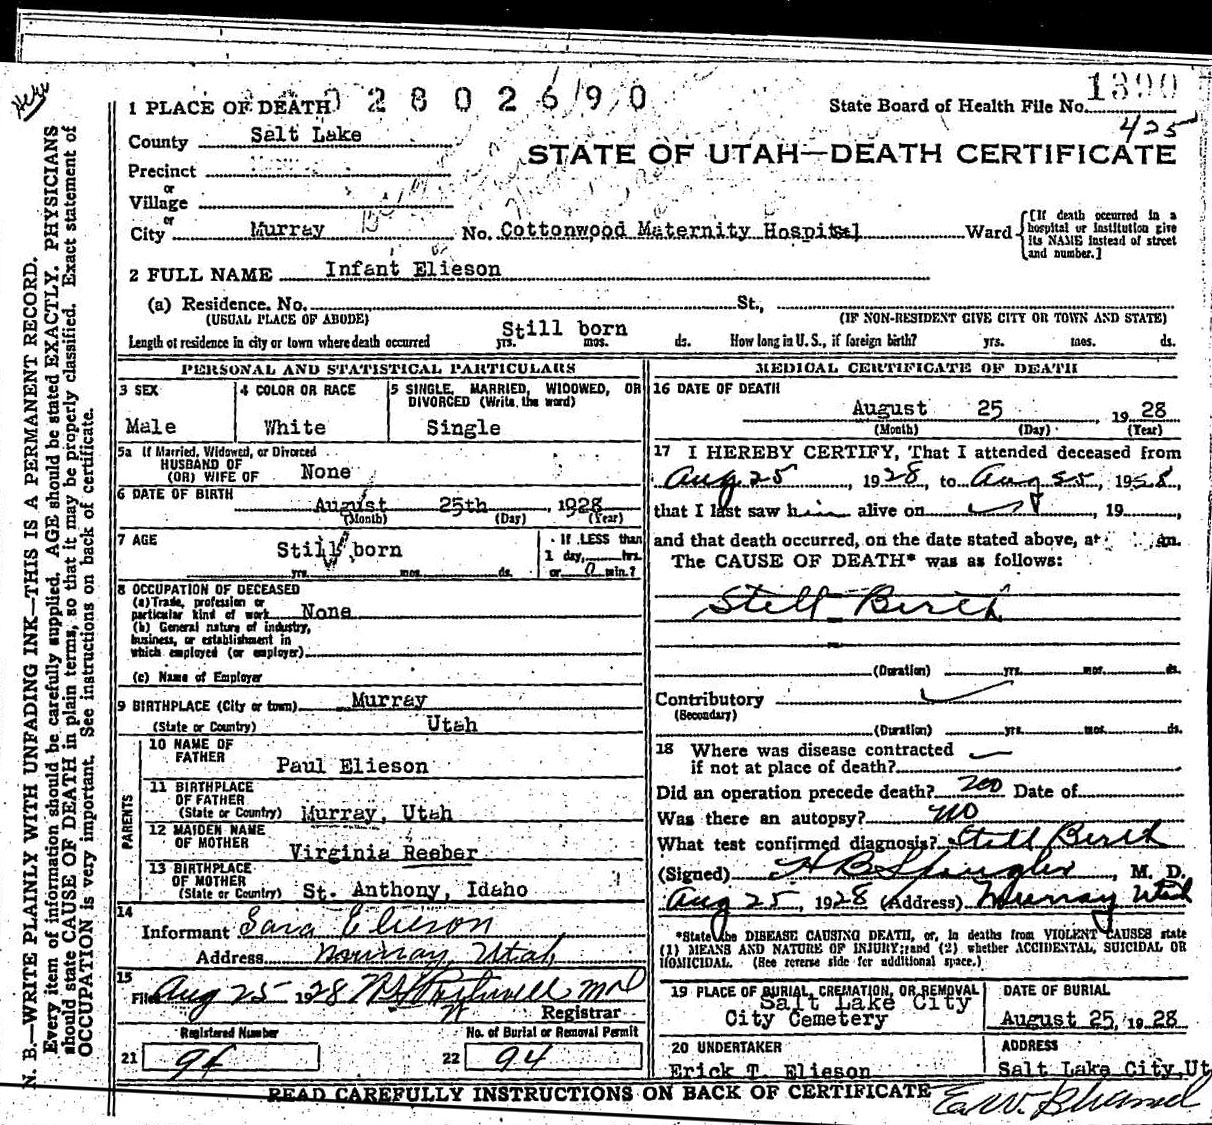 Here
0 2 8 0 2 6 9 0
1 PLACE OF DEATH
State Board of Health File No. 1390
425
County Salt Lake
STATE OF UTAH—DEATH CERTIFICATE
Precinct
or
Village
or
City Murray No. Cottonwood Maternity Hospital Ward
[If death occurred in a hospital or institution give its NAME instead of street and number.]
2 FULL NAME Infant Elieson
(a) Residence. No. St.,
(USUAL PLACE OF ABODE) (IF NON-RESIDENT GIVE CITY OR TOWN AND STATE)
Still born
Length of residence in city or town where death occurred yrs. mos. ds. How long in U. S., if foreign birth? yrs. mos. ds.
PERSONAL AND STATISTICAL PARTICULARS
3 SEX 4 COLOR OR RACE 5 SINGLE, MARRIED, WIDOWED, OR DIVORCED (Write the word)
Male White Single
5a If Married, Widowed, or Divorced
HUSBAND OF
(OR) WIFE OF None
6 DATE OF BIRTH
August 25th, 1928
(Month) (Day) (Year)
7 AGE
Still born
yrs. mos. ds.
If LESS than
1 day, hrs.
or 0 min.?
8 OCCUPATION OF DECEASED
(a) Trade, profession or
particular kind of work None
(b) General nature of industry,
business, or establishment in
which employed (or employer)
(c) Name of Employer
9 BIRTHPLACE (City or town) Murray
(State or Country) Utah
PARENTS
10 NAME OF
FATHER Paul Elieson
11 BIRTHPLACE
OF FATHER
(State or Country) Murray, Utah
12 MAIDEN NAME
OF MOTHER Virginia Reeber
13 BIRTHPLACE
OF MOTHER
(State or Country) St. Anthony, Idaho
14
Informant Sara Elieson
Address Murray, Utah
15
Filed Aug 25 1928
Registrar
Registered Number No. of Burial or Removal Permit
21 94 22 94
MEDICAL CERTIFICATE OF DEATH
16 DATE OF DEATH
August 25 1928
(Month) (Day) (Year)
17 I HEREBY CERTIFY, That I attended deceased from
Aug 25, 1928, to Aug 25, 1928,
that I last saw him alive on , 19 ,
and that death occurred, on the date stated above, at m.
The CAUSE OF DEATH* was as follows:
Still Birth
(Duration) yrs. mos. ds.
Contributory
(Secondary)
(Duration) yrs. mos. ds.
18 Where was disease contracted
if not at place of death?
Did an operation precede death? no Date of
Was there an autopsy? no
What test confirmed diagnosis? Still Birth
(Signed) H B Spingler, M. D.
Aug 25, 1928 (Address) Murray Utah
*State the DISEASE CAUSING DEATH, or, in deaths from VIOLENT CAUSES state
(1) MEANS AND NATURE OF INJURY; and (2) whether ACCIDENTAL, SUICIDAL OR
HOMICIDAL. (See reverse side for additional space.)
19 PLACE OF BURIAL, CREMATION, OR REMOVAL
Salt Lake City
City Cemetery
DATE OF BURIAL
August 25, 1928
20 UNDERTAKER
Erick T. Elieson
ADDRESS
Salt Lake City, Ut
READ CAREFULLY INSTRUCTIONS ON BACK OF CERTIFICATE
N. B.—WRITE PLAINLY WITH UNFADING INK—THIS IS A PERMANENT RECORD.
Every item of information should be carefully supplied. AGE should be stated EXACTLY. PHYSICIANS
should state CAUSE OF DEATH in plain terms, so that it may be properly classified. Exact statement of
OCCUPATION is very important. See instructions on back of certificate.